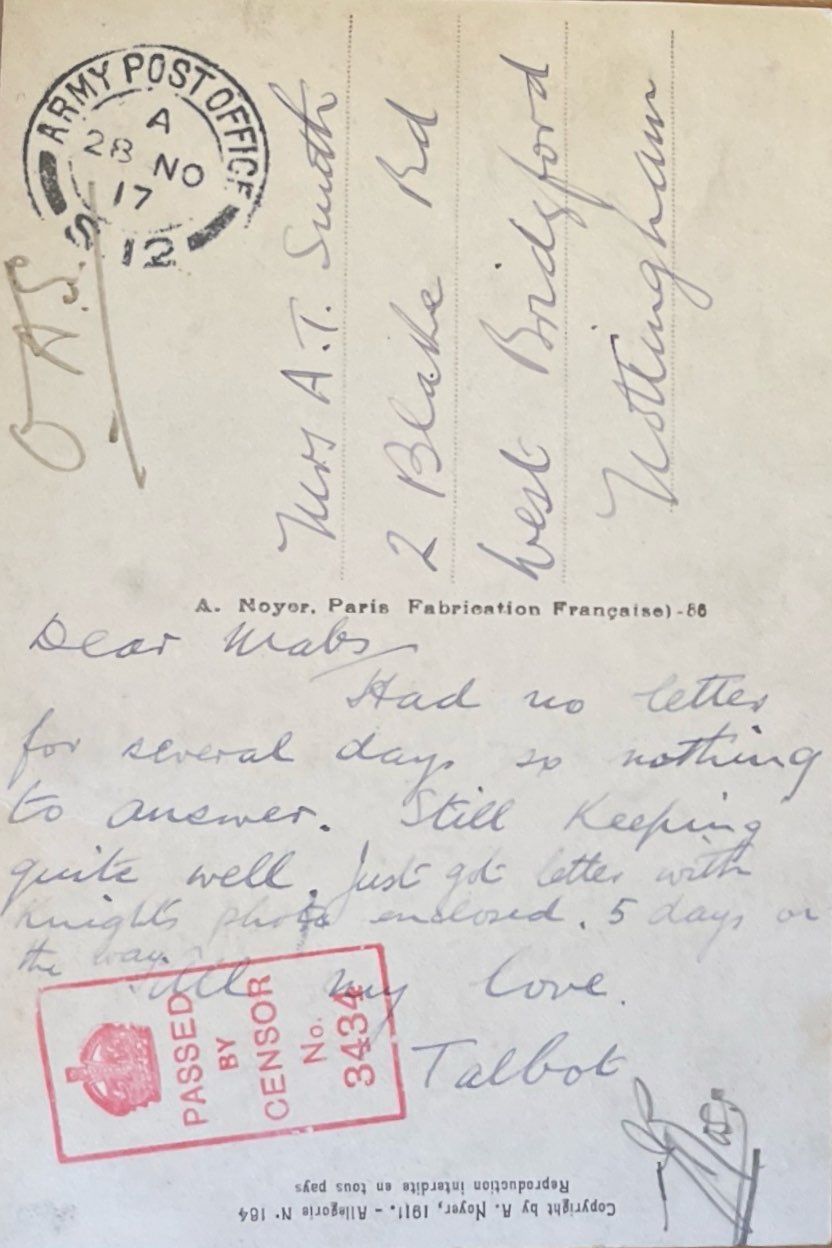 ARMY POST OFFICE
A
28 NO
17
S 12
O A.S.
Mrs A.T. Smith
2 Blake Rd
West Bridgford
Nottingham
A. Noyer. Paris Fabrication Française)-86
Dear Mabs
Had no letter
for several days so nothing
to answer. Still Keeping
quite well. Just got letter with
Knights photo enclosed. 5 days on
the way.
All my love.
Talbot
PASSED
BY
CENSOR
No.
3434
Copyright by A. Noyer, 1911. - Allegorie N. 184
Reproduction interdite en tous pays